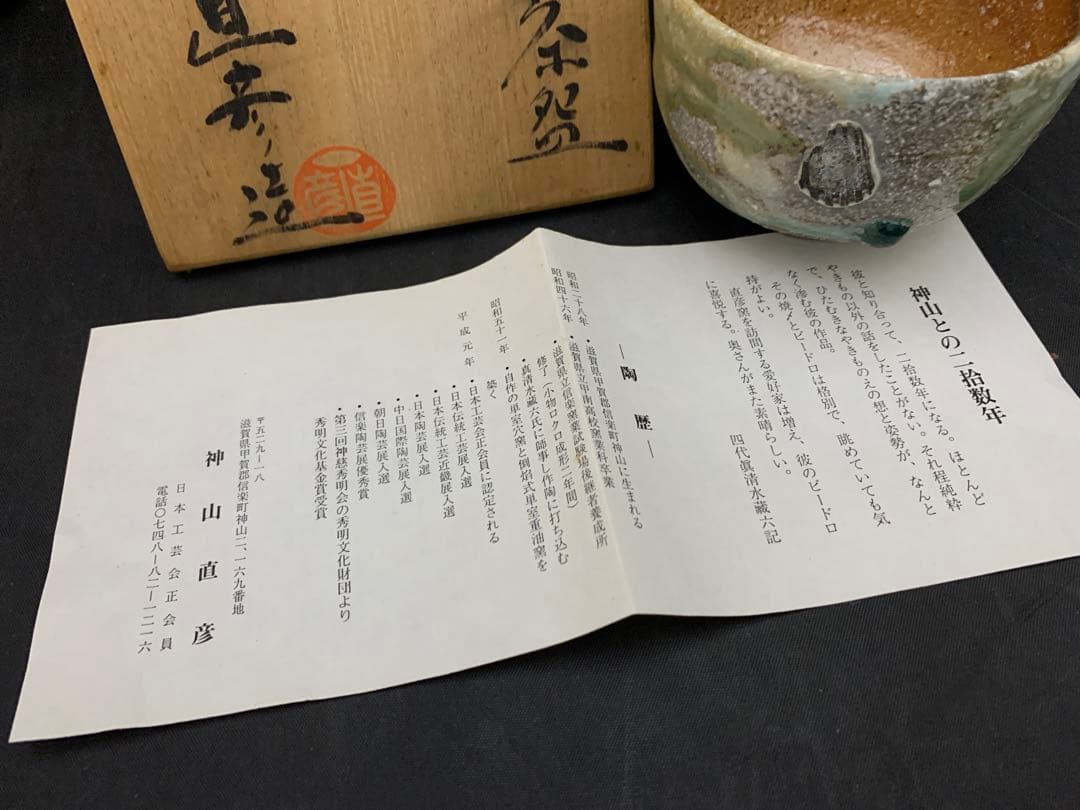 茶盌
直彦造
直彦
神山との二拾数年
彼と知り合って、二拾数年になる。ほとんど
やきもの以外の話をしたことがない。それ程純粋
で、ひたむきなやきものえの想と姿勢が、なんと
なく滲む彼の作品。
その焼〆とビードロは格別で、眺めていても気
持がよい。
直彦窯を訪問する愛好家は増え、彼のビードロ
に喜悦する。奥さんがまた素晴らしい。
四代眞清水藏六記
―陶歴―
昭和二十八年 ・滋賀県甲賀郡信楽町神山に生まれる
昭和四十六年 ・滋賀県立甲南高校窯業科卒業
・滋賀県立信楽窯業試験場後継者養成所
修了(小物ロクロ成形二年間)
・真清水藏六氏に師事し作陶に打ち込む
昭和五十一年 ・自作の単室穴窯と倒焰式単室重油窯を
築く
平成元年 ・日本工芸会正会員に認定される
・日本伝統工芸展入選
・日本伝統工芸近畿展入選
・日本陶芸展入選
・中日国際陶芸展入選
・朝日陶芸展入選
・信楽陶芸展優秀賞
・第三回神慈秀明会の秀明文化財団より
秀明文化基金賞受賞
〒五二九―一八
滋賀県甲賀郡信楽町神山二、一六九番地
神山直彦
日本工芸会正会員
電話〇七四八―八二―一二一六